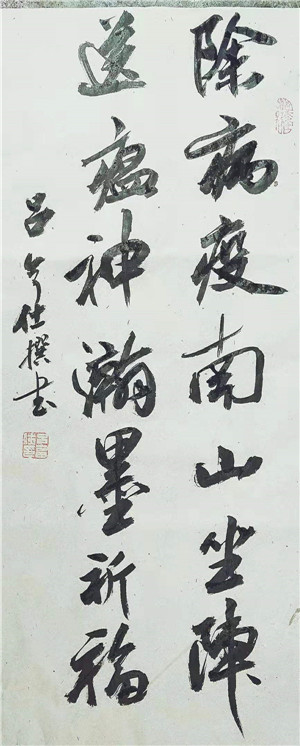 除病疫南山坐陣
送瘟神瀚墨祈福
吕仕撰书